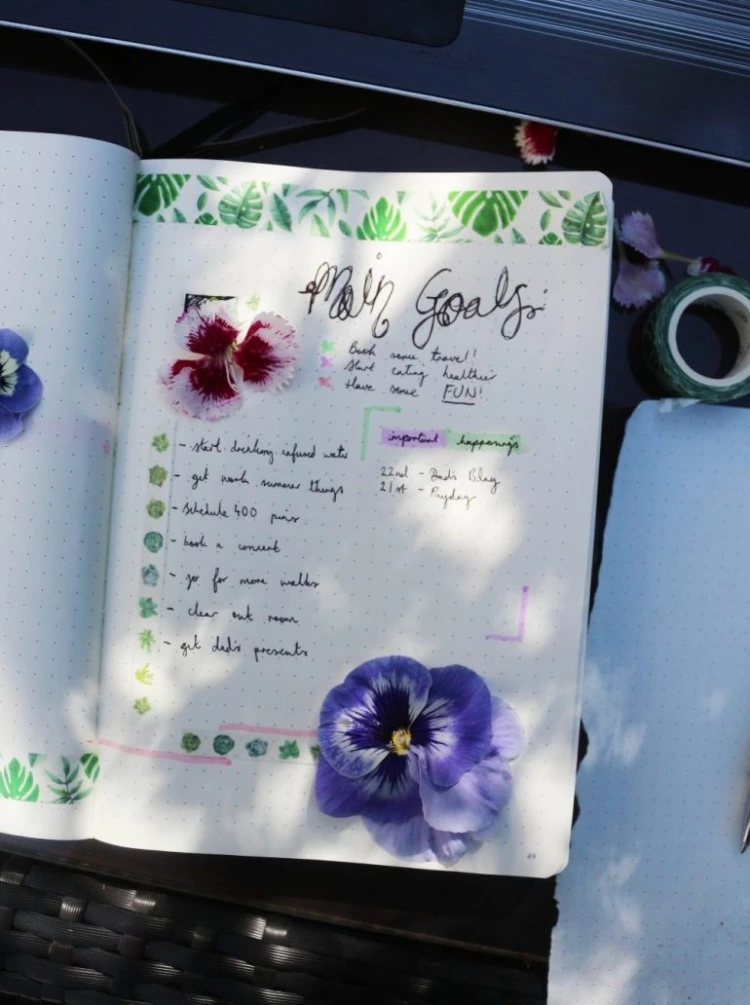 Main Goals
Book some travel!
Start eating healthier
Have some FUN!
important happenings
22nd - Dad's Bday
21st - Payday
- start drinking infused water
- get work summer things
- schedule 400 pins
- book a concert
- go for more walks
- clear out room
- get dad's presents
49